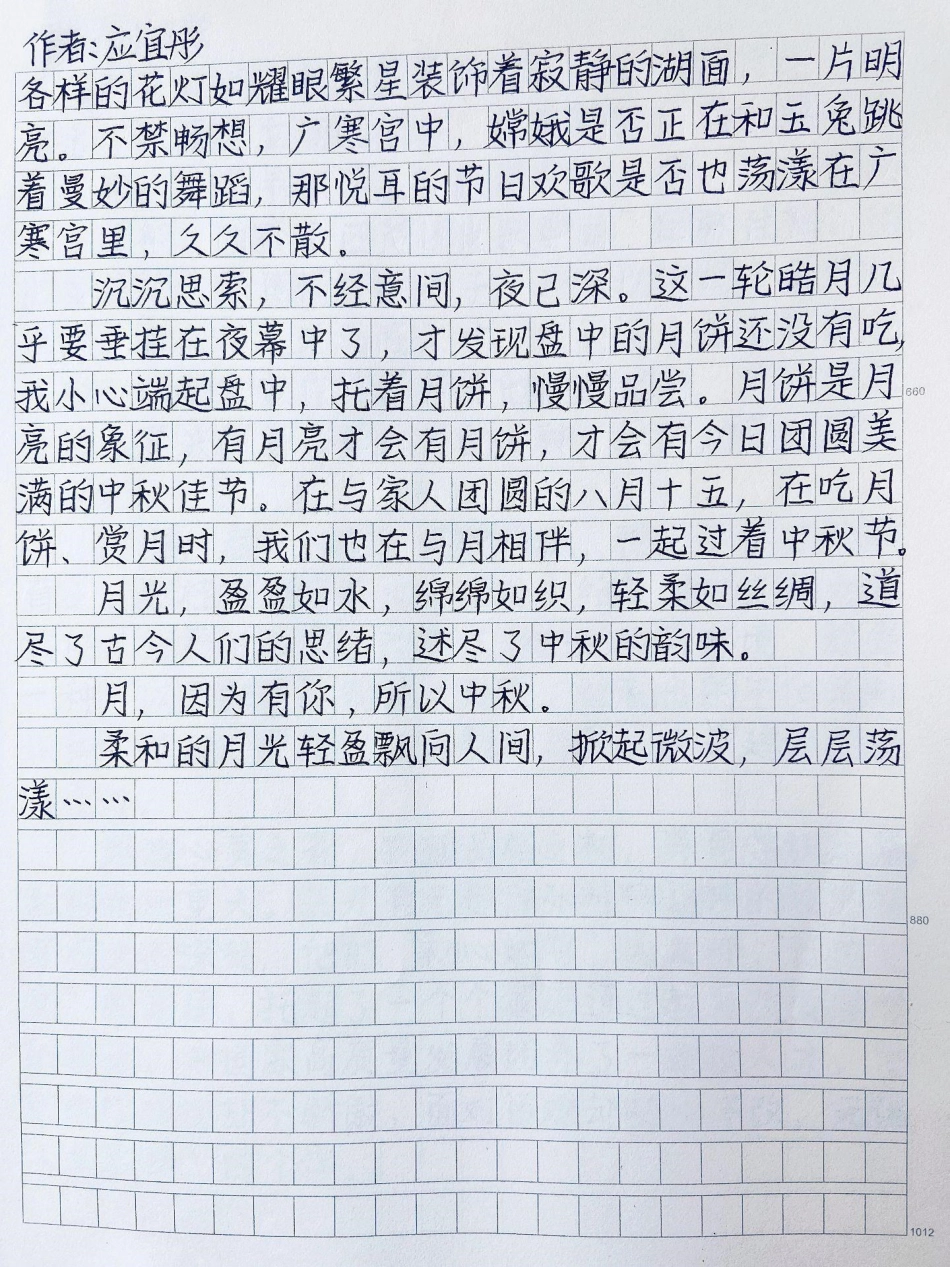 作者:应宜彤
各样的花灯如耀眼繁星装饰着寂静的湖面，一片明
亮。不禁畅想，广寒宫中，嫦娥是否正在和玉兔跳
着曼妙的舞蹈，那悦耳的节日欢歌是否也荡漾在广
寒宫里，久久不散。
沉沉思索，不经意间，夜已深。这一轮皓月几
乎要垂挂在夜幕中了，才发现盘中的月饼还没有吃，
我小心端起盘中，托着月饼，慢慢品尝。月饼是月
660
亮的象征，有月亮才会有月饼，才会有今日团圆美
满的中秋佳节。在与家人团圆的八月十五，在吃月
饼、赏月时，我们也在与月相伴，一起过着中秋节。
月光，盈盈如水，绵绵如织，轻柔如丝绸，道
尽了古今人们的思绪，述尽了中秋的韵味。
月，因为有你，所以中秋。
柔和的月光轻盈飘向人间，掀起微波，层层荡
漾……
880
1012